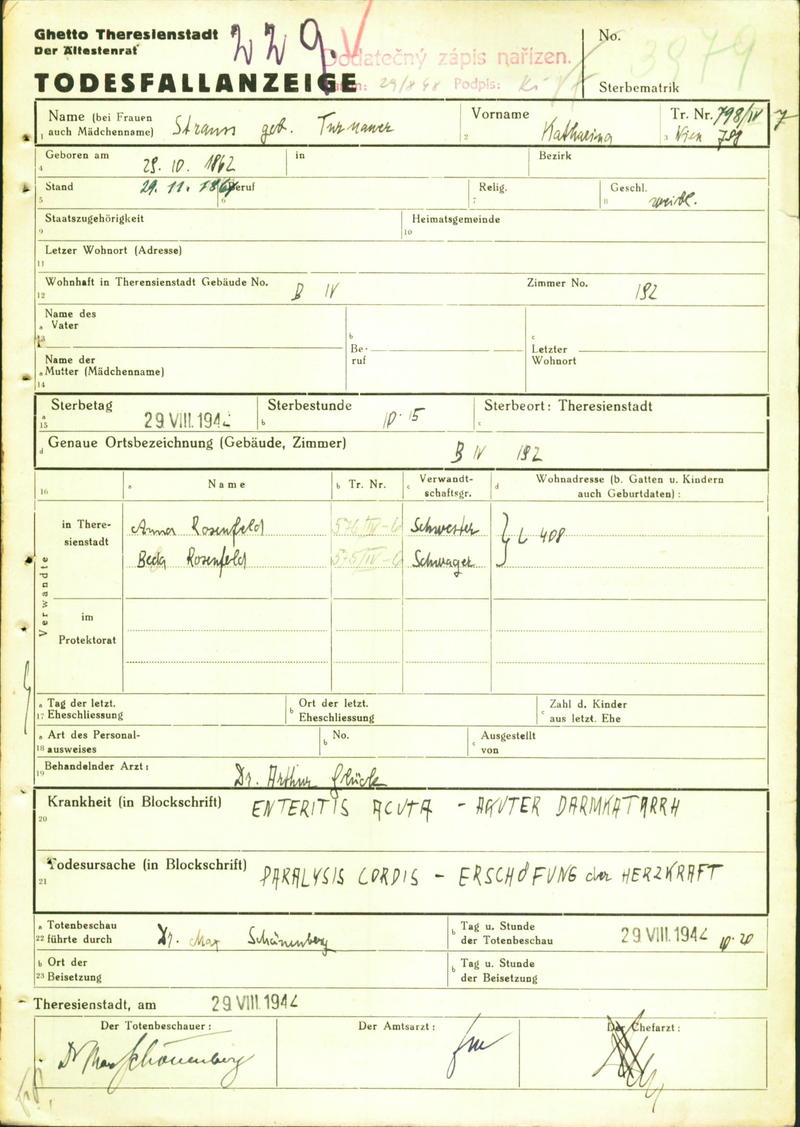 Ghetto Theresienstadt
Der Ältestenrat
229.
Dodatečný zápis nařízen.
29/8 48 Podpis:
No. 3979
Sterbematrik
TODESFALLANZEIGE
Name (bei Frauen auch Mädchenname) Strauss geb. Turnauer
1
Vorname Katharina
2
Tr. Nr. 798/IV 7
3 Wien
Geboren am 29. 10. 1862 in Bezirk
4
Stand 29. 11. Beruf Relig. Geschl. weibl.
5 6 7 8
Staatszugehörigkeit Heimatsgemeinde
9 10
Letzer Wohnort (Adresse)
11
Wohnhaft in Therensienstadt Gebäude No. B IV Zimmer No. 192
12
Name des
a Vater
13
b Be-
ruf
c Letzter
Wohnort
Name der
a Mutter (Mädchenname)
14
Sterbetag 29 VIII. 1942 Sterbestunde 10.15 Sterbeort: Theresienstadt
a 15 b c
d Genaue Ortsbezeichnung (Gebäude, Zimmer) B IV 192
16 a Name b Tr. Nr. c Verwandt-
schaftsgr. d Wohnadresse (b. Gatten u. Kindern
auch Geburtdaten) :
Verwandte
in There-
sienstadt
Anna Rosenfeld 576/IV- Schwester L 408
Rosenfeld 575/IV- Schwager
im
Protektorat
a Tag der letzt.
17 Eheschliessung
b Ort der letzt.
Eheschliessung
c Zahl d. Kinder
aus letzt. Ehe
a Art des Personal-
18 ausweises
b No.
c Ausgestellt
von
Behandelnder Arzt: Dr. Arthur Glück
19
Krankheit (in Blockschrift) ENTERITIS ACUTA - AKUTER DARMKATARRH
20
Todesursache (in Blockschrift) PARALYSIS CORDIS - ERSCHÖFUNG der HERZKRAFT
21
a Totenbeschau
22 führte durch Dr. Max Schönenberg
b Tag u. Stunde
der Totenbeschau 29 VIII. 1942 10.20
b Ort der
23 Beisetzung
b Tag u. Stunde
der Beisetzung
Theresienstadt, am 29 VIII. 1942
Der Totenbeschauer: Der Amtsarzt: Der Chefarzt:
Dr Max Schönenberg